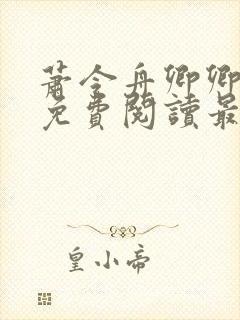 蕭令舟卿卿
免費閱讀最
皇小帝